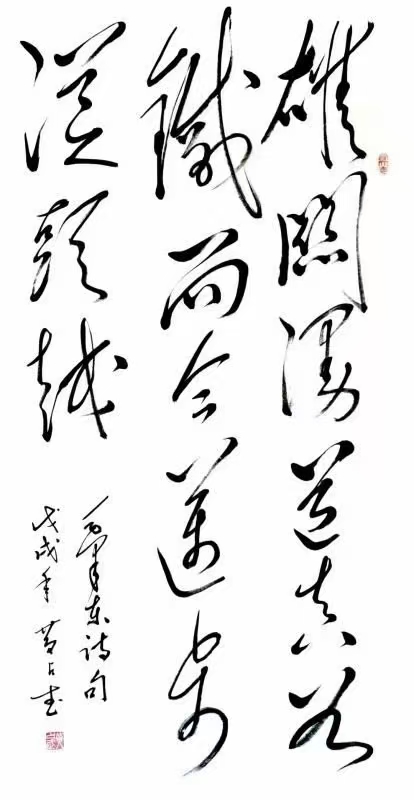 雄關漫道真如
鐵而今邁步
從頭越
毛澤東詩句
戊戌年